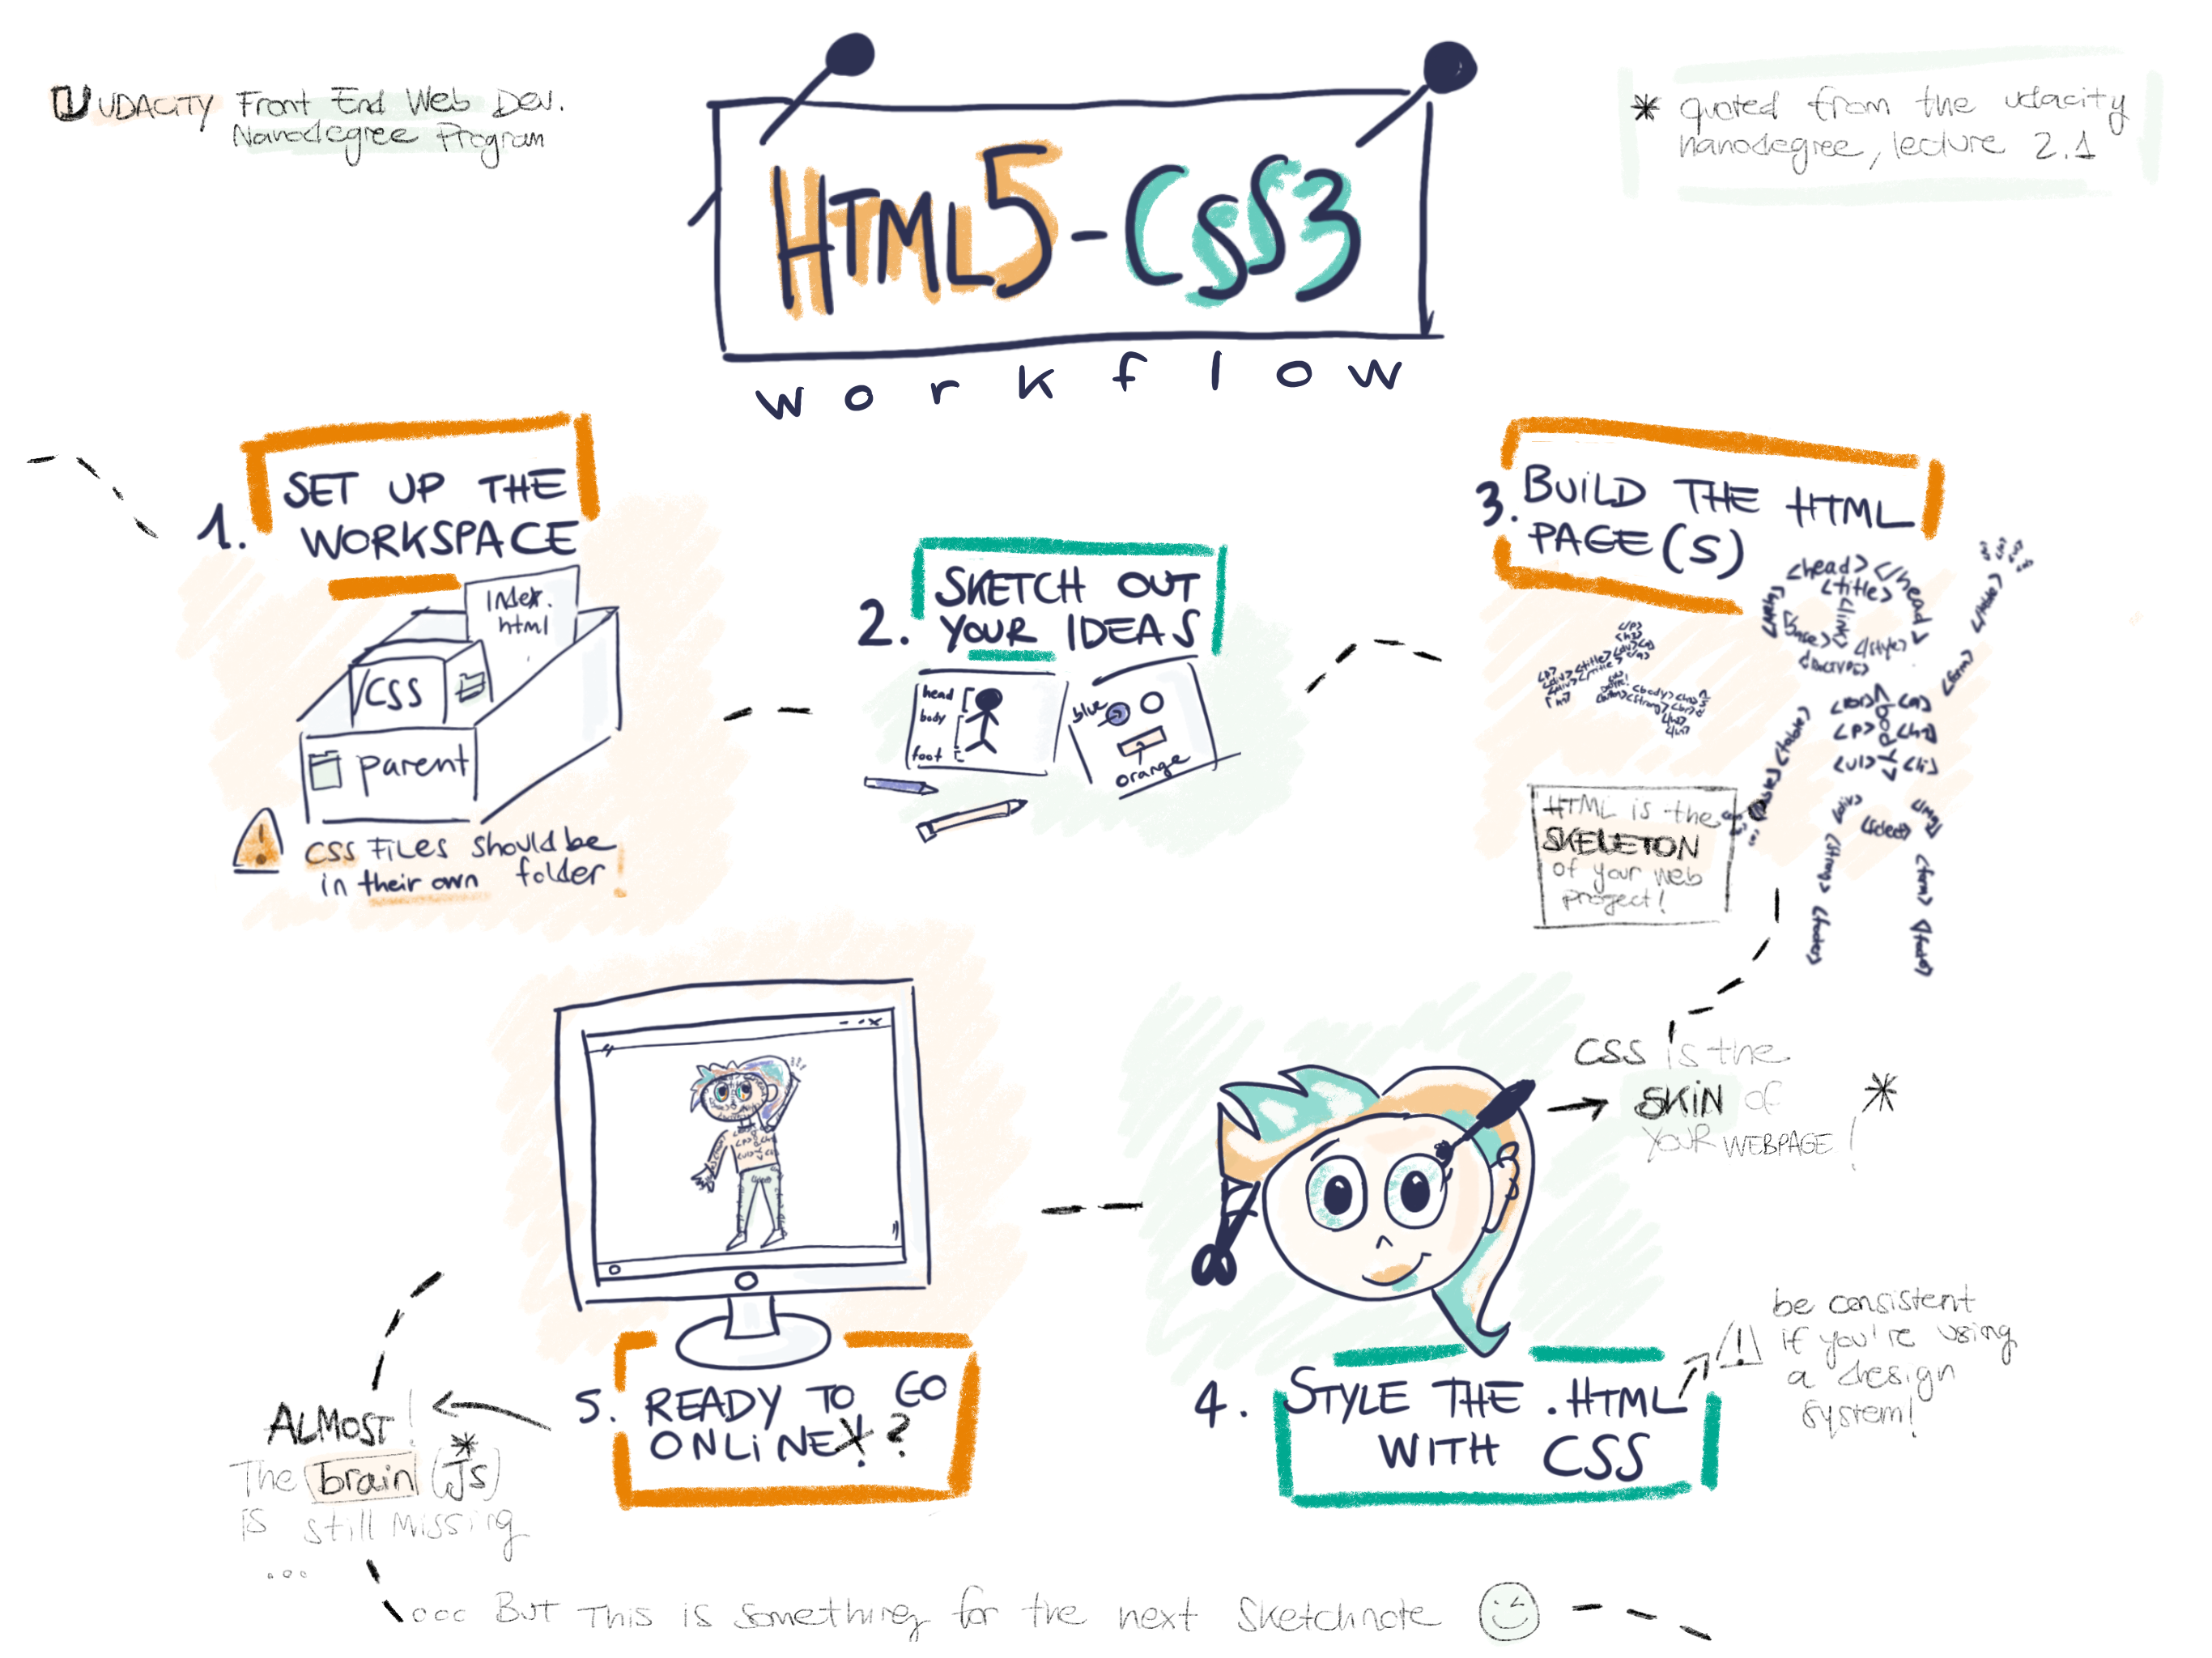 UDACITY Front End Web Dev.
Nanodegree Program
HTML5-CSS3
workflow
* quoted from the udacity
nanodegree, lecture 2.1
1. SET UP THE
WORKSPACE
Index.
html
CSS
parent
CSS FILES should be
in their own folder!
2. SKETCH OUT
YOUR IDEAS
head
body
foot
blue
orange
3. BUILD THE HTML
PAGE(S)
<head> </head>
<title>
<link>
</style>
<body>
<p>
<ul>
<li>
<form>
HTML is the
SKELETON
of your web
project!
CSS is the
SKIN of *
YOUR WEBPAGE!
4. STYLE THE .HTML
WITH CSS
be consistent
if you're using
a design
system!
5. READY TO GO
ONLINE!?
ALMOST!
The brain (JS) *
is still missing
...
... BUT THIS is something for the next sketchnote